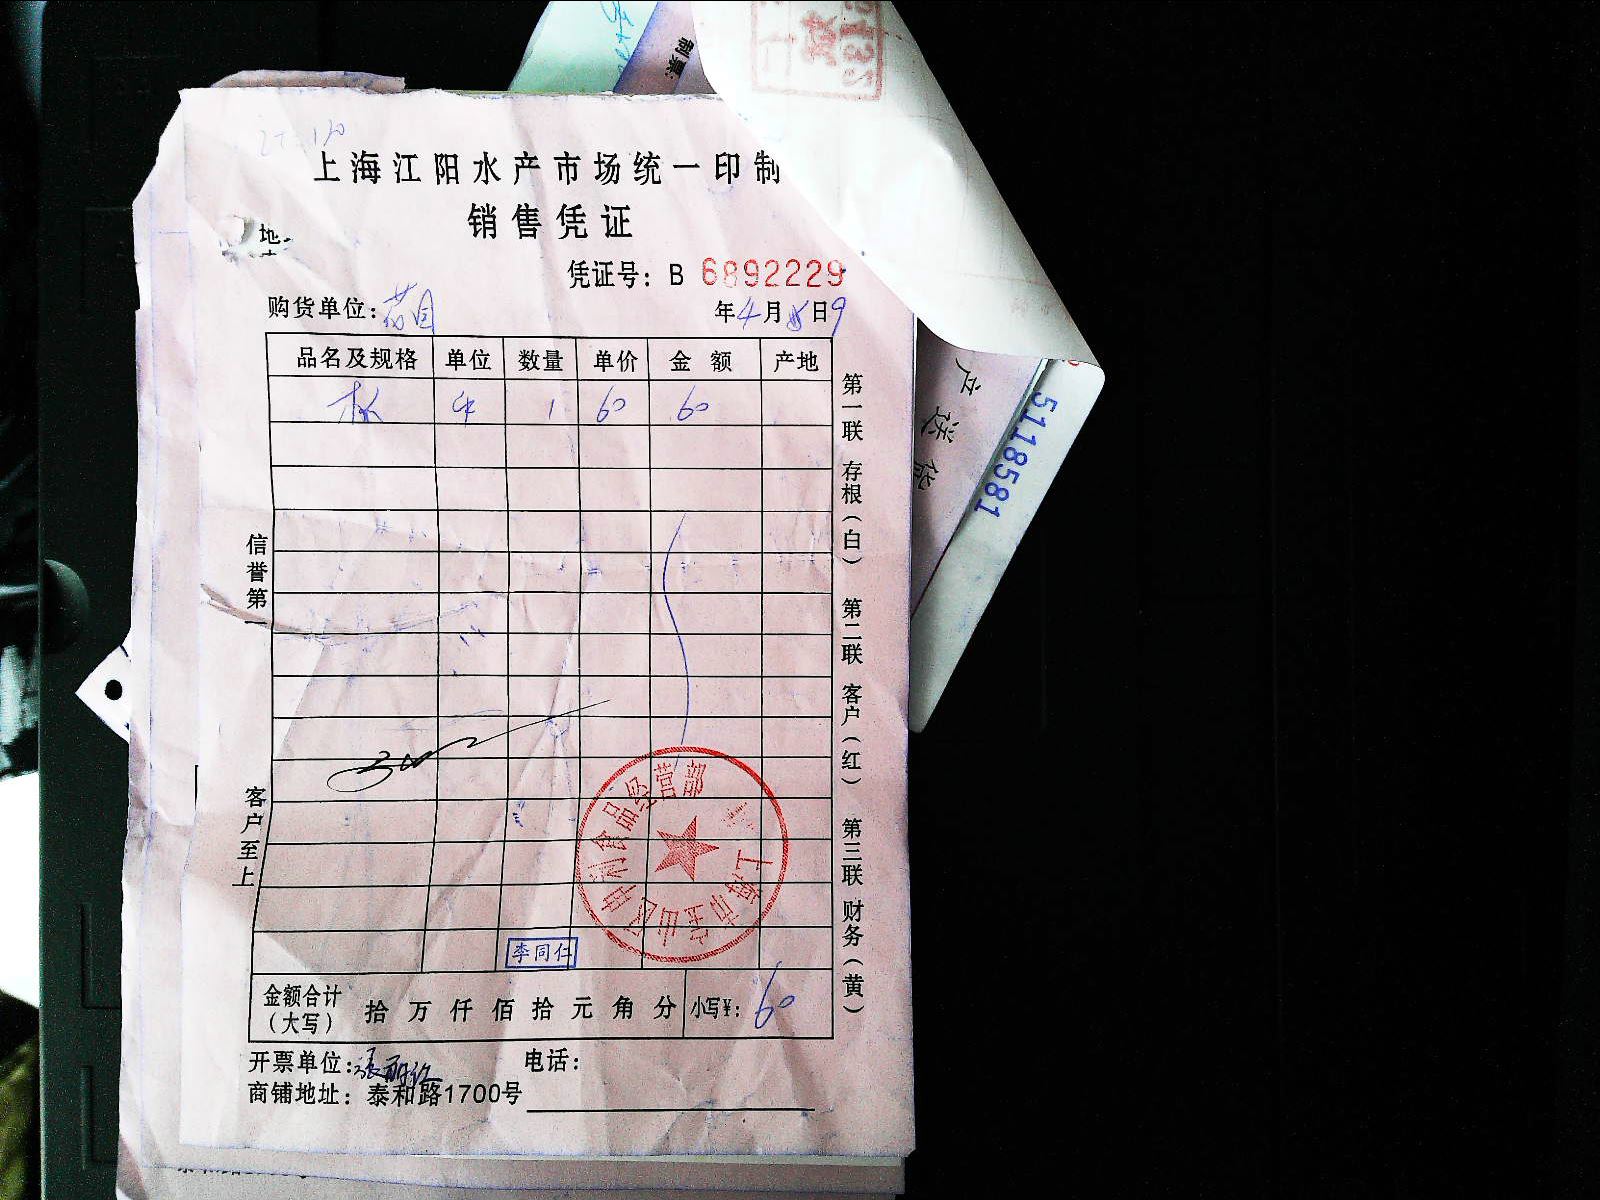 制票:
上海江阳水产市场统一印制
销售凭证
地
凭证号: B 6892229
购货单位:
年4月8日9
品名及规格 单位 数量 单价 金额 产地
1 60 60
第一联 存根(白) 第二联 客户(红) 第三联 财务(黄)
信誉第一
客户至上
上海市宝山区申利食品经营部
李同仁
金额合计(大写) 拾 万 仟 佰 拾 元 角 分 小写¥: 60
开票单位:张丽红
电话:
商铺地址: 泰和路1700号
产送货
5118581